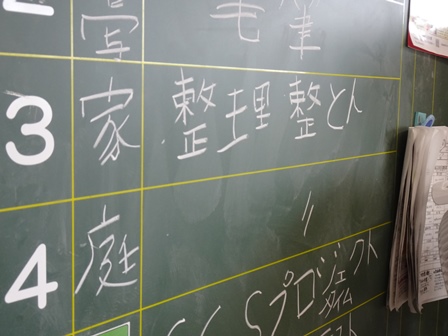 写 毛筆
3 家 整理整とん
4 庭 〃
Sプロジェクト
タイム